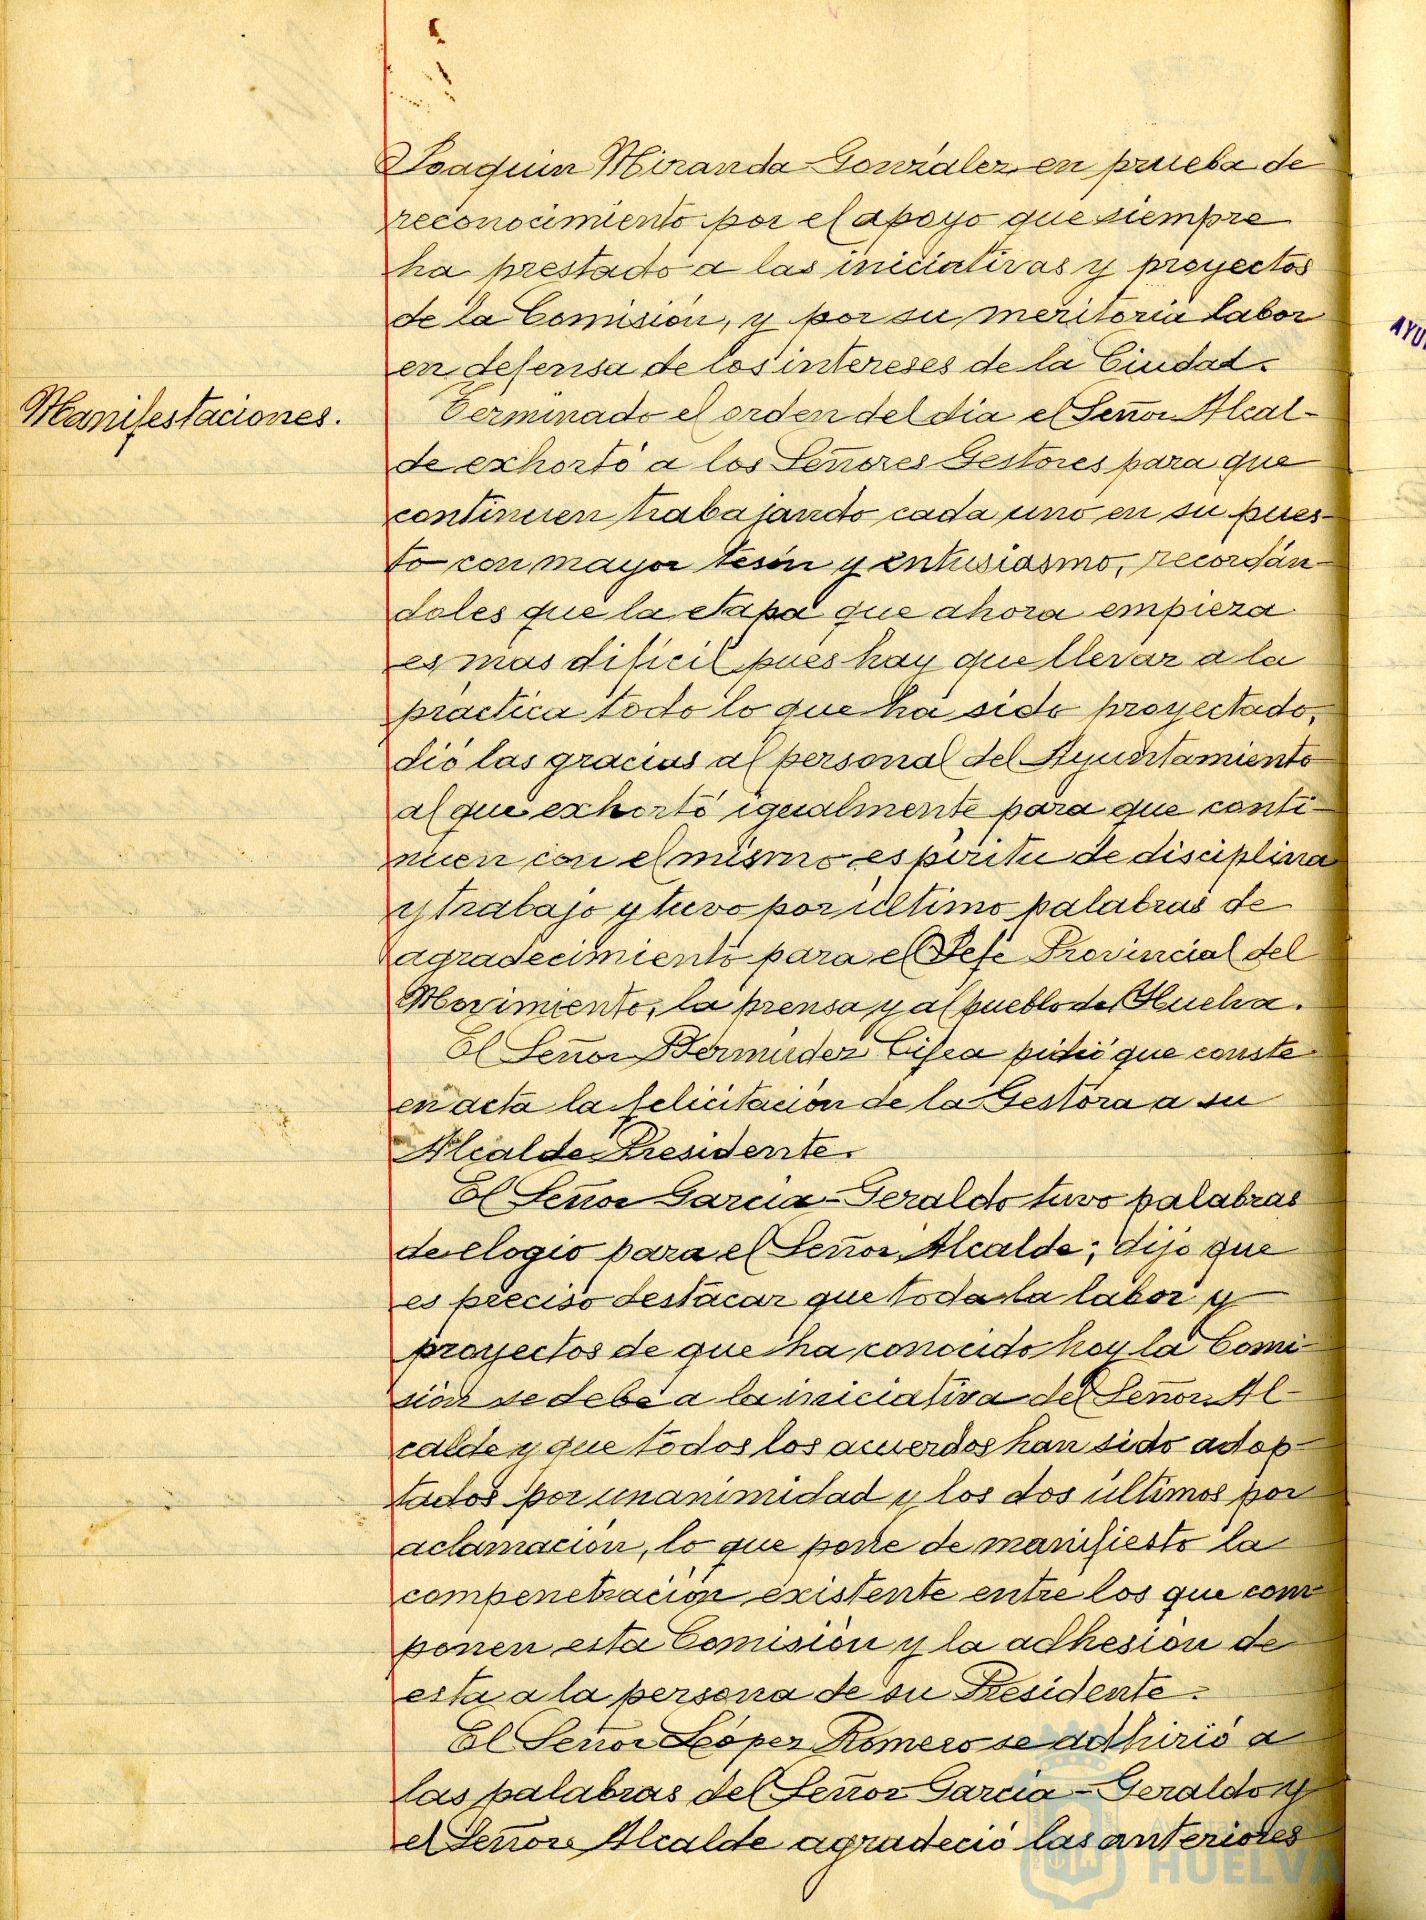 Joaquin Miranda Gonzalez en prueba de
reconocimiento por el apoyo que siempre
ha prestado a las iniciativas y proyectos
de la Comisión, y por su meritoria labor
en defensa de los intereses de la Ciudad.
Manifestaciones.
Terminado el orden del dia el Señor Alcal-
de exhortó a los Señores Gestores para que
continuen trabajando cada uno en su pues-
to con mayor tesón y entusiasmo, recordán-
doles que la etapa que ahora empieza
es mas dificil pues hay que llevar a la
práctica todo lo que ha sido proyectado,
dió las gracias al personal del Ayuntamiento
al que exhortó igualmente para que conti-
nuen con el mismo espiritu de disciplina
y trabajo y tuvo por último palabras de
agradecimiento para el Jefe Provincial del
Movimiento, la prensa y al pueblo de Huelva.
El Señor Bermudez Cifea pidió que conste
en acta la felicitación de la Gestora a su
Alcalde Presidente.
El Señor Garcia-Geraldo tuvo palabras
de elogio para el Señor Alcalde; dijo que
es preciso destacar que toda la labor y
proyectos de que ha conocido hoy la Comi-
sión se debe a la iniciativa del Señor Al-
calde y que todos los acuerdos han sido adop-
tados por unanimidad y los dos últimos por
aclamación, lo que pone de manifiesto la
compenetración existente entre los que com-
ponen esta Comisión y la adhesión de
esta a la persona de su Presidente.
El Señor López Romero se adhirió a
las palabras del Señor Garcia-Geraldo y
el Señor Alcalde agradeció las anteriores
HUELVA